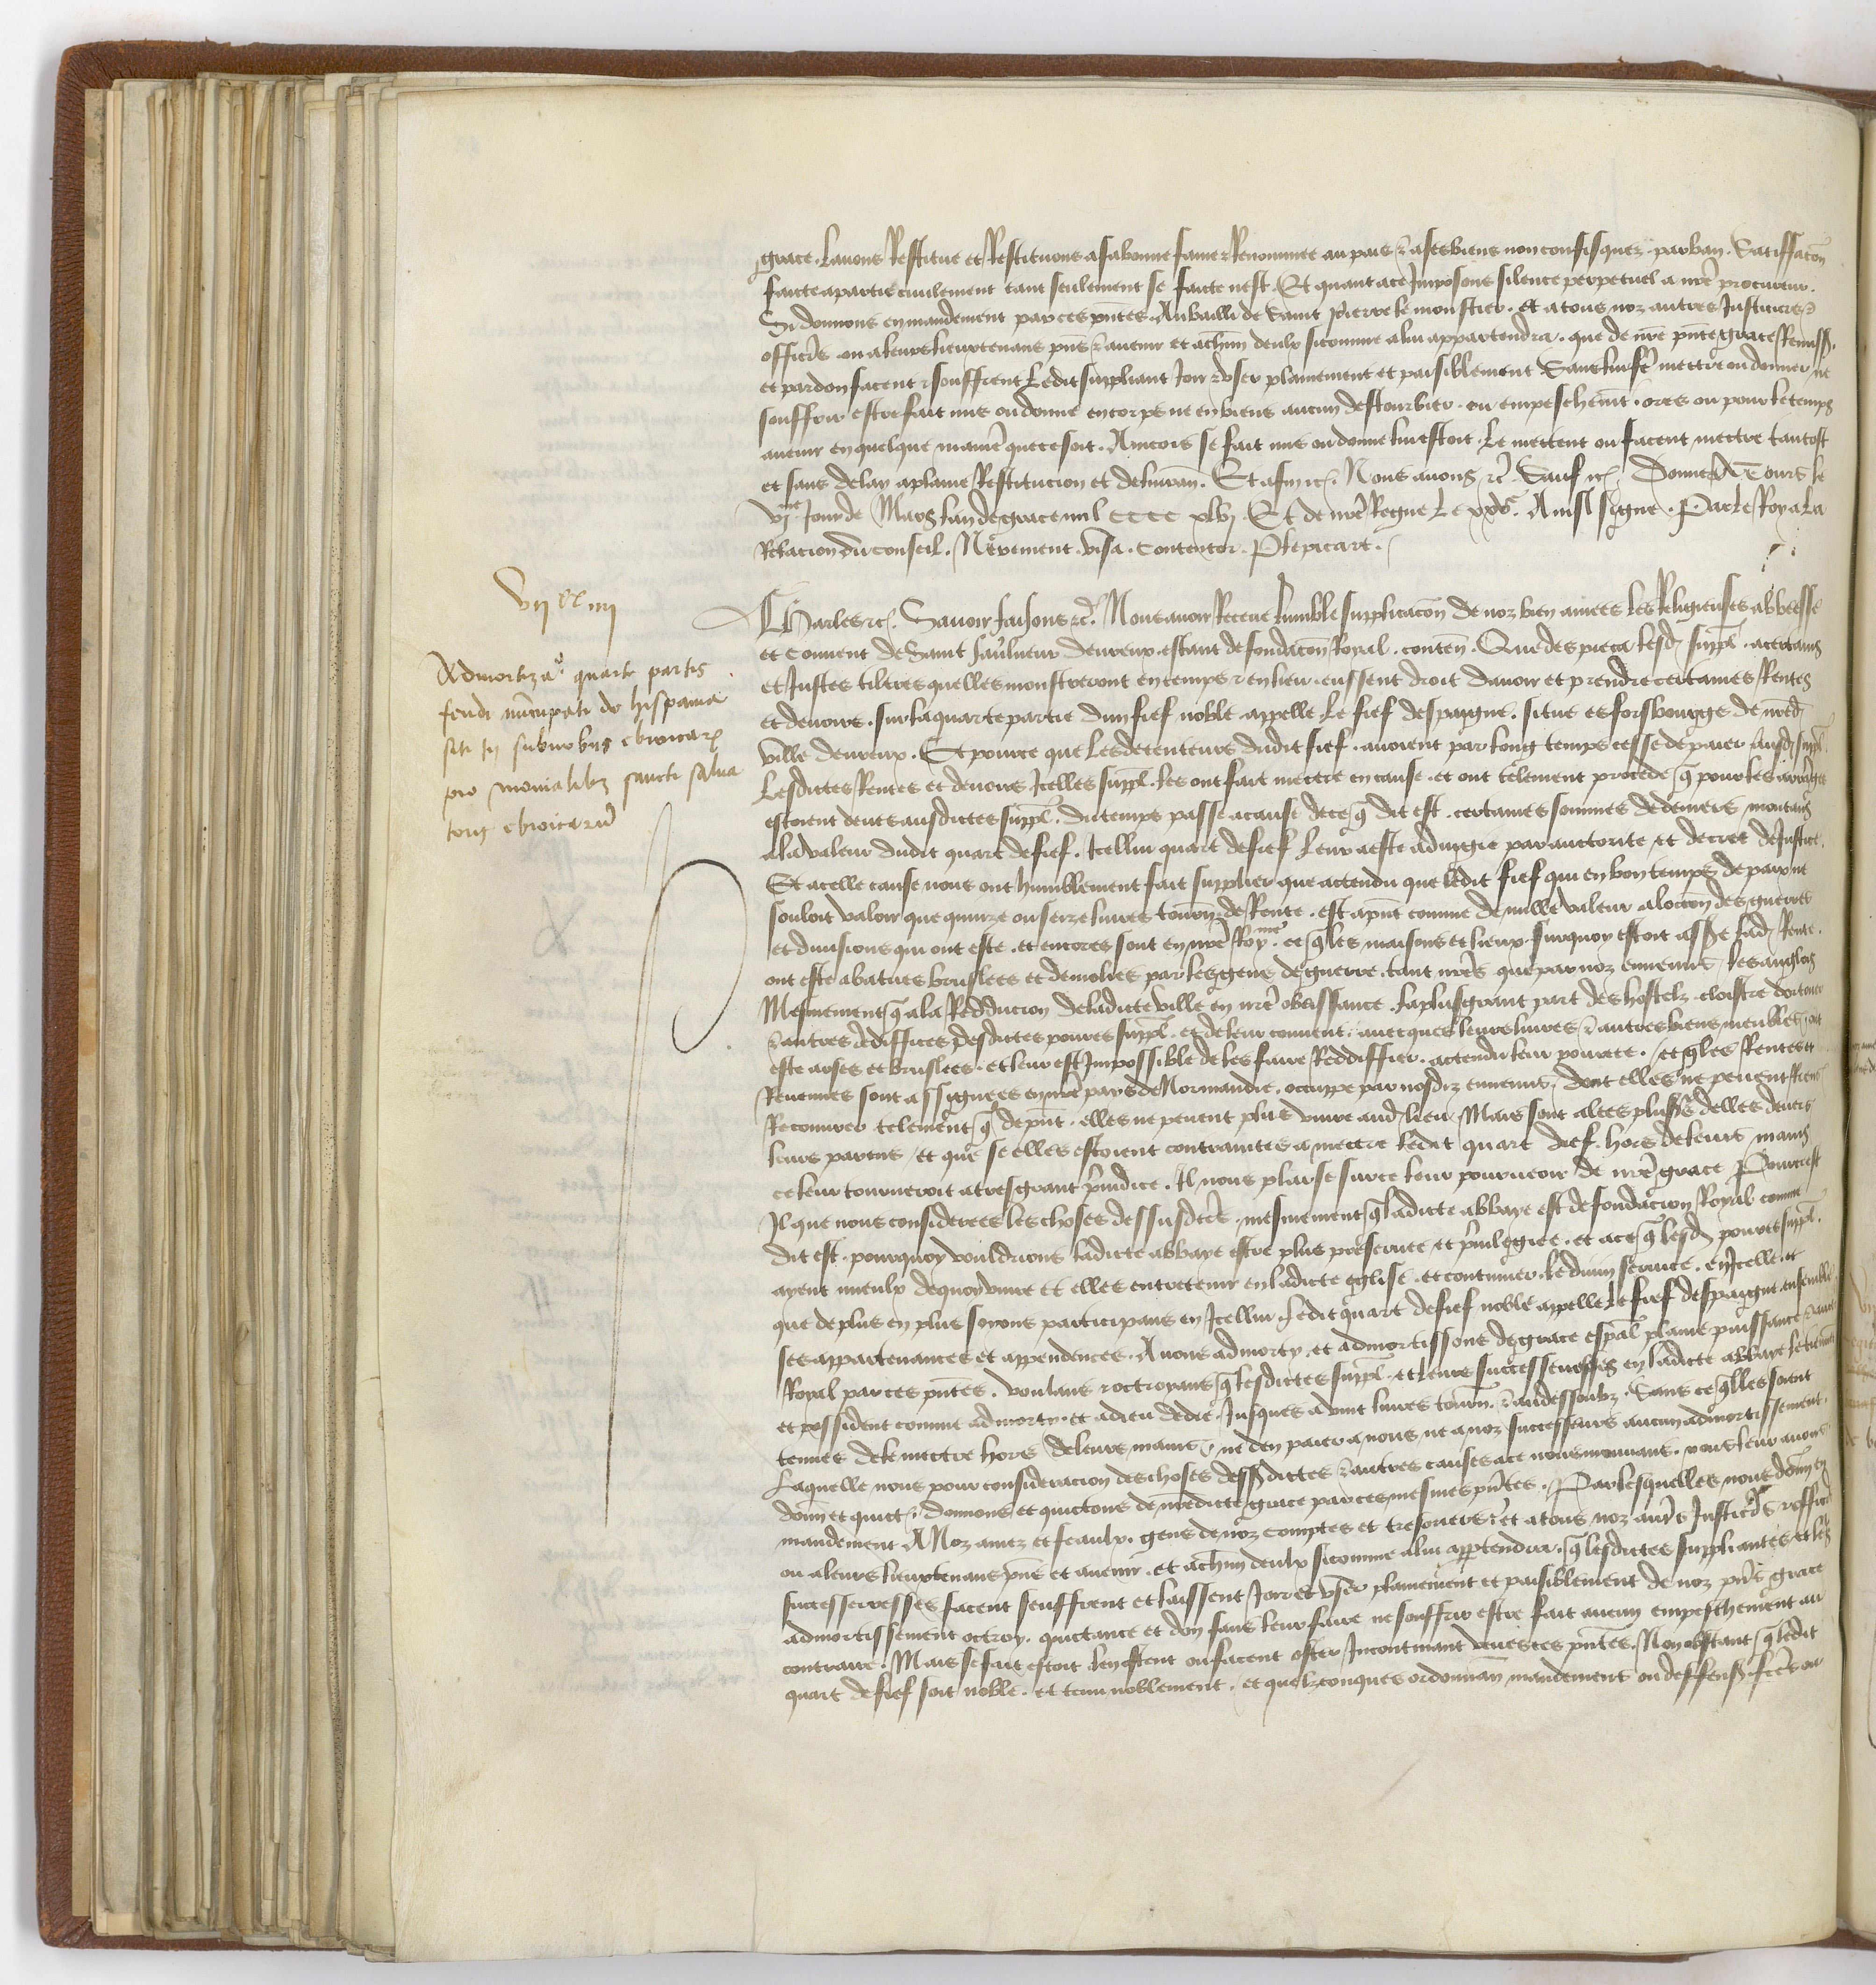 grace. Lavons Restitue et Restituons a sa bonne fame & Renommee au pais & a ses biens non confisquez par ban. Satiffacōn
faicte a partie civilement tant seulement se faicte nest. Et quant a ce Imposons silence perpetuel a nrē procureur.
Si donnons en mandement par ces pñtes. Au bailli de Saint pierre le monstier. et a tous noz autres Justiciers &
officiērs ou a leurs lieuxtenans pñs & avenir et a chūn deulx si comme a lui appartendra. que de nrē pñte grace Remissō.
et pardon facent & souffrent Ledit suppliant Joir & user plainement et paisiblement Sans lui fē mettre ou donner / ne
souffrir estre fait mis ou donne en corps ne en biens aucun destourbier ou empeschemēt. ores ou pour le temps
avenir en quelque maniē que ce soit. Aincois se fait mis ou donne lui estoit. Le mettent ou facent mettre tantost
et sans delay a plaine Restitucion et delivrān. Et afin &c. Nous avons &c. Sauf &c. Donne a Tours le
vjme Jour de Mars lan de grace mil CCCC xlvj. Et de nrē Regne Le xxve. Ainsi signe. Par Le Roy a la
Relacion du conseil. Nevement. visa. contentor. P lepicart.
vij xx iiij
Admortizaō quarte partis
feudi nūcupati de hispania
siti in suburbiis ebroicar
pro monialibz sancti salva
toris ebroicarū
Charles &c. Savoir faisons &c. Nous avoir Receue lumble supplicacōn de noz bien amees Les Religieuses abbeesse
et couvent de Saint sauveur devreux. estant de fondacōn Royal. conten. Que des pieca lesd suppl. a certains
et Justes tiltres quelles monstreront en temps & en lieu. eussent droit davoir et prendre certaines Rentes
et devoirs. sur la quarte partie dun fief noble appelle Le fief despaigne. situe es forsbourgs de nred
ville devreux. Et pource que Les detenteurs dudit fief. avoient par long temps cesse de paier ausd suppl
Lesdictes Rentes et devoirs Icelles suppl. les ont fait mettre en cause. et ont telement procede q pour les arrerages
estoient deues ausdictes suppl. du temps passe a cause de ce q dit est. certaines sommes de deniers montans
a la valeur dudit quart de fief. Icellui quart de fief Leur a este adiugie par auctorite et decret de Justice.
Et a celle cause nous ont humblement fait supplier que actendu que ledit fief qui en bon temps de paix ne
souloit valoir que quinze ou seize livres tourn de Rente. est a pñt comme de nulle valeur a loccōn des guerres
et divisions qui ont este. et encores sont en nrē Royme. et q les maisons et lieux. sur quoy estoit assize lad Rente.
ont este abatues bruslees et demolies par les gens de guerre. tant nrēs que par noz ennemis Les anglois
Mesmement q a la Redducion de ladicte ville en nrē obeissance. la plus grant part des hostelz cloistre dortouer
& autres ediffices desdictes povres suppl. et de leur couvent. avecques leurs livres & autres biens meubles ont
este arses et bruslees. et leur est Impossible de les faire Reddiffier. actendu leur povrete. et q les Rentes et
Revenues sont assignees en nrē pays de Normandie. occuppe par nosdiz ennemis. dont elles ne pevent Riens
Recouvrer telement q de pñt. elles ne pevent plus vivre aud lieu Mais sont alees pluss delles devers
leurs parens. et que se elles estoient contrainctes a mettre ledit quart dief. hors de leurs mains
ce leur tourneroit a tresgrant piudice. Il nous plaise sur ce leur pourveoir de nrē grace Pour ce est
Il que nous considerees les choses dessusdictes. mesmement q ladicte abbaye est de fondacion Royal comme
dit est. pourquoy vouldrions ladicte abbaye estre plus preservee et pivilegiee. et a ce q lesd povres suppl.
ayent mieulx de quoy vivre et elles entretenir en ladicte eglise. et continuer. le divin service. en Icelle. et
que de plus en plus soyons participans en Icellui. Ledit quart de fief noble appelle Le fief despaigne. ensemble
ses appartenances et appendences. Avons admorty. et admortissons de grace espāl plaine puissance & auct
Royal par ces pñtes. voulans & octroyans q lesdictes suppl. et leurs successeresses en ladicte abbaye le tiennent
et possident comme admorty. et a dieu dedie. Jusques a vint livres tourn. & audessoubz. Sans ce qlles soient
tenues de le mettre hors de leurs mains. ne den paier a nous. ne a noz successeurs aucun admortissement.
Laquelle nous pour consideracion des choses dessusdictes & autres causes a ce nous mouvans. nous leur avons
donn et quict. donnons et quictons de nredicte grace par ces mesmes pñtes. Par lesquelles nous donn en
mandement A Noz amez et feaulx. gens de noz comptes et tresoriers. et a tous noz autrēs Justiciers & officiers
ou a leurs lieuxtenans pñs et avenir. et a chūn deulx si comme a lui appartendra. q lesdictes suppliantes et les
successeresses facent seuffrent et laissent Joir et user plainement et paisiblement de noz pñs grace
admortissement octroy. quictance et don sans leur faire ne souffrir estre fait aucun empeschement au
contraire. Mais se fait estoit lenostent ou facent oster Incontinant veues ces pñtes. Non obstant q ledit
quart de fief soit noble. et tenu noblement. et quelzconques ordonnān mandement ou deffens. fctēs ou